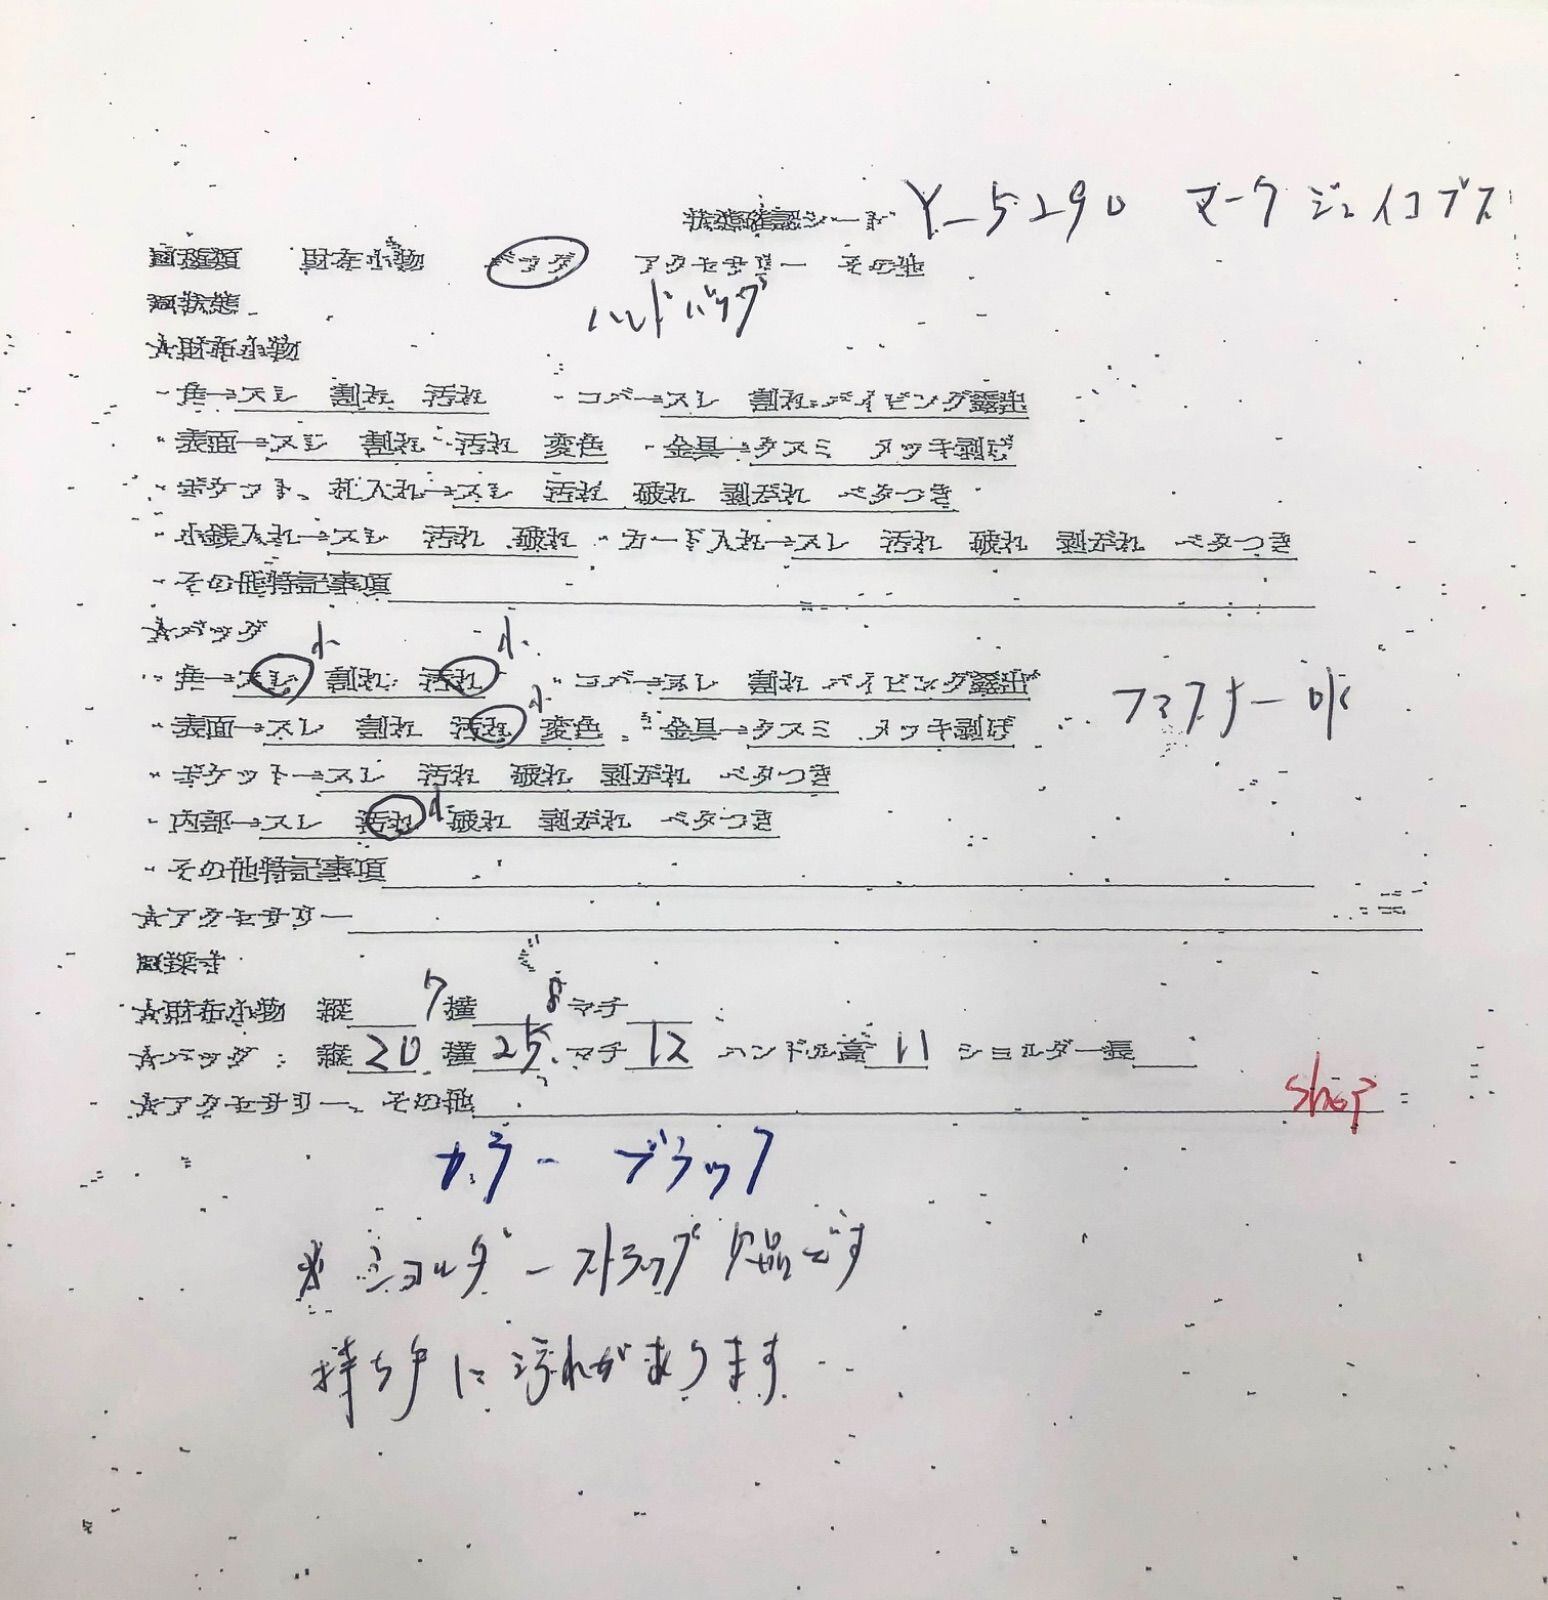 状態確認シート Y_5290 マークジェイコブス
□種類 財布小物 バッグ アクセサリー その他
ハンドバッグ
□状態
☆財布小物
・角→スレ 割れ 汚れ ・コバ→スレ 割れ パイピング露出
・表面→スレ 割れ 汚れ 変色 ・金具→クスミ メッキ剥げ
・ポケット、札入れ→スレ 汚れ 破れ 剥がれ ベタつき
・小銭入れ→スレ 汚れ 破れ ・カード入れ→スレ 汚れ 破れ 剥がれ ベタつき
・その他特記事項
☆バッグ
小 小
・角→スレ 割れ 汚れ ・コバ→スレ 割れ パイピング露出
・表面→スレ 割れ 汚れ 小 変色 ・金具→クスミ メッキ剥げ ファスナーOK
・ポケット→スレ 汚れ 破れ 剥がれ ベタつき
・内部→スレ 汚れ 小 破れ 剥がれ ベタつき
・その他特記事項
☆アクセサリー
□採寸
☆財布小物 縦 7 横 8 マチ
☆バッグ:縦 20 横 25 マチ 12 ハンドル高 11 ショルダー長
☆アクセサリー、その他
shop
カラー ブラック
※ショルダーストラップ欠品です
持ち手に汚れがあります